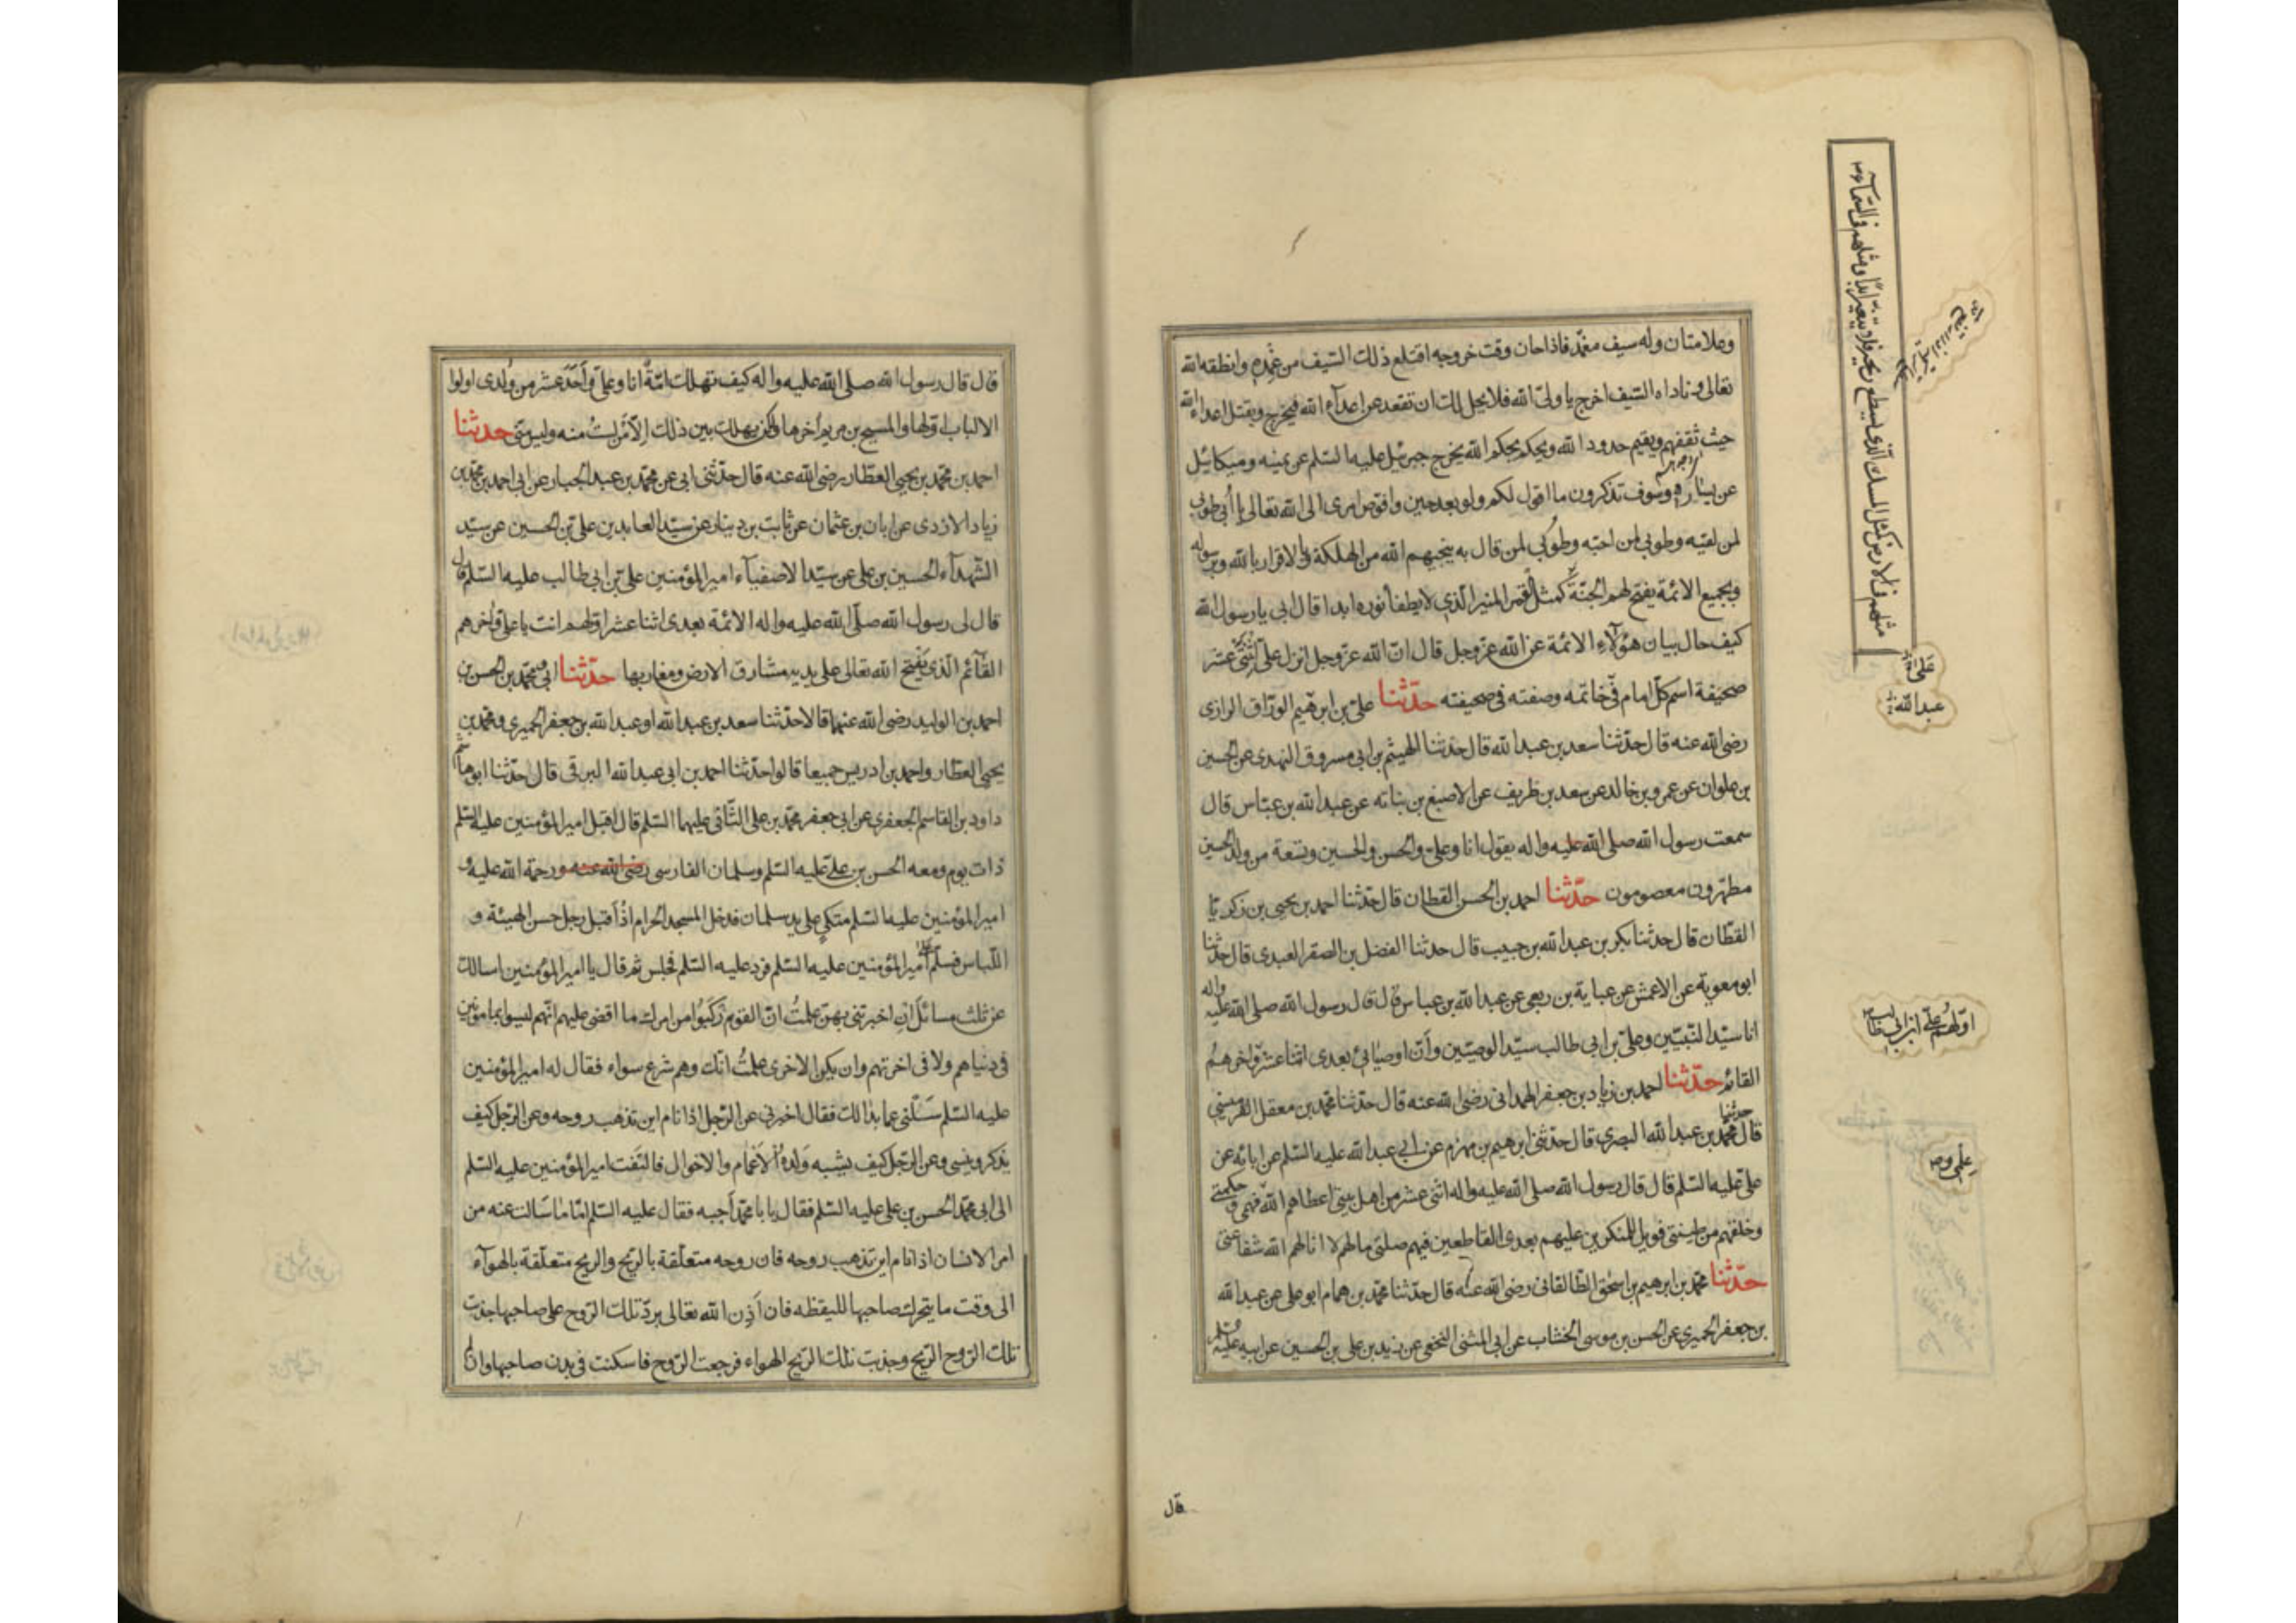 وعلامتان وله سيف مغمد فاذا حان وقت خروجه اقتلع ذلك السيف من غمده وانطقه الله
تعالى وناداه السيف اخرج يا ولىّ الله فلا يحل لك ان تقعد عن اعدآء الله فيخرج ويقتل اعداء الله
حيث ثقفهم ويقيم حدود الله ويحكم بحكم الله يخرج جبرئيل عليه السّلم عن يمينه وميكائيل
عن يساره وسوف تذكرون ما اقول لكم ولو بعد حين وافوض امرى الى الله تعالى يا أبى طوبى
لمن لقيه وطوبى لمن احبّه وطوبى لمن قال به ينجيهم الله من الهلكة وبالاقرار بالله وبرسوله
وبجميع الائمة يفتح لهم الجنّة كمثل القمر المنير الّذى لا يطفأ نوره ابدا قال ابى يا رسول الله
كيف حال بيان هؤلآء الائمة عن الله عزّ وجل قال انّ الله عزّ وجل انزل علىّ اثنتى عشر
صحيفة اسم كلّ امام فى خاتمه وصفته فى صحيفته حدّثنا علىّ بن ابرهيم الورّاق الرازى
رضى الله عنه قال حدّثنا سعد بن عبد الله قال حدّثنا الهيثم بن ابى مسروق النهدى عن الحسين
بن علوان عن عمرو بن خالد عن سعد بن ظريف عن الاصبغ بن بناته عن عبد الله بن عبّاس قال
سمعت رسول الله صلى الله عليه واله يقول انا وعلىّ والحسن والحسين وتسعة من ولد الحسين
مطهّرون معصومون حدّثنا احمد بن الحسن القطان قال حدّثنا احمد بن يحيى بن زكريّا
القطّان قال حدّثنا بكر بن عبد الله بن حبيب قال حدثنا الفضل بن الصقر العبدى قال حدّثنا
ابو معوية عن الاعمش عن عباية بن ربعى عن عبد الله بن عباس قال قال رسول الله صلى الله عليه واله
انا سيّد النّبيّين وعلىّ بن ابى طالب سيّد الوصيّين وانّ اوصيائى بعدى اثنا عشر واخرهم
القائم حدّثنا احمد بن زياد بن جعفر الهمدانى رضى الله عنه قال حدّثنا محمّد بن معقل القرميسينى
قال حدثنا محمّد بن عبد الله البصرى قال حدّثنى ابرهيم بن مهزم عن ابى عبد الله عليه السّلم عن ابائه عن
علىّ عليه السّلم قال قال رسول الله صلى الله عليه واله اثنى عشر من اهل بيتى اعطاهم الله فهمى وحكمتى
وخلقهم من طينتى فويل للمنكرين عليهم بعدى القاطعين فيهم صلتى ما لهم لا انالهم الله شفاعتى
حدّثنا محمّد بن ابرهيم بن اسحٰق الطّالقانى رضى الله عنه قال حدّثنا محمّد بن همام ابو على عن عبد الله
بن جعفر الحميرى عن الحسن بن موسى الخشّاب عن ابى المثنى النخعى عن زيد بن على بن الحسين عن ابيه عليهم السّلم
قال
مثلهم فى الارض كمثل المسك الّذى يسطع ريحه فلا يتغيّر ابدًا ومثلهم فى السّمآء
عبد الله
اوّلهُم علىّ ابن ابى طالب
علمى
قال قال رسول الله صلى الله عليه واله كيف تهلك امّةٌ انا وعلىّ واَحَدَ عشر من وُلدى اولوا
الالباب اوّلها والمسيح بن مريم اٰخرها ولكن يهلك بين ذلك اِلّا مَن لستُ منه وليس منّى حدثنا
احمد بن محمّد بن يحيى العطّار رضى الله عنه قال حدّثنى ابى عن محمّد بن عبد الجبار عن ابى احمد بن محمّد بن
زياد الازدى عن ابان بن عثمان عن ثابت بن دينار عن سيّد العابدين علىّ بن الحسين عن سيّد
الشّهدآء الحسين بن على عن سيّد الاصفيآء امير المؤمنين علىّ بن ابى طالب عليه السّلم قال
قال لى رسول الله صلّى الله عليه واله الائمّة بعدى اثنا عشر اوّلهم انت يا علىّ واٰخرهم
القآئم الّذى يَفتح الله تعالى على يديه مشارق الارض ومغاربها حدّثنا ابى ومحمّد بن الحسن بن
احمد بن الوليد رضى الله عنهما قالا حدّثنا سعد بن عبد الله او عبد الله بن جعفر الحميرى ومحمّد بن
يحيى العطّار واحمد بن ادريس جميعا قالوا حدّثنا احمد بن ابى عبد الله البرقى قال حدّثنا ابو هاشم
داود بن القاسم الجعفرى عن ابى جعفر محمّد بن على الثّانى عليهما السّلم قال اقبل امير المؤمنين عليه السّلم
ذات يوم ومعه الحسن بن علىّ عليه السّلم وسلمان الفارسى رضى الله عنه ورحمة الله عليه و
امير المؤمنين عليه السّلم متكى على يد سلمان فدخل المسجد الحرام اذ اقبل رجل حسن الهيئة و
اللّباس فسلّم على امير المؤمنين عليه السّلم فرد عليه السّلم فجلس ثم قال يا امير المؤمنين اسالك
عن ثلث مسائل اِن اخبرتنى بهنّ علمتُ انّ القوم رَكَبُوا من امرك ما اقضى عليهم انّهم ليسوا بمامونين
فى دنياهم ولا فى اخرتهم وان يكن الاخرى علمتُ انّك وهم شرع سواء فقال له امير المؤمنين
عليه السّلم سَلْنى عما بدا لك فقال اخبرنى عن الرّجل اذا نام اين تذهب روحه وعن الرّجل كيف
يذكر وينسى وعن الرّجل كيف يشبه وَلدهُ الاَعْمام والاخوال فالتَفت امير المؤمنين عليه السّلم
الى ابى محمّد الحسن بن على عليه السّلم فقال يا با محمّد اَجبه فقال عليه السّلم امّا ما سَالت عنه من
امر الانسان اذ انام اين تذهب روحه فان روحه متعلّقة بالرّيح والريح متعلّقة بالهوآء
الى وقت ما يتحرك صاحبها لليقظه فان اَذِن الله تعالى بردّ تلك الرّوح على صاحبها جذبت
تلك الرّوح الرّيح وجذبت تلك الرّيح الهواء فرجعت الرّوح فاسكنت فى بدن صاحبها وان لم